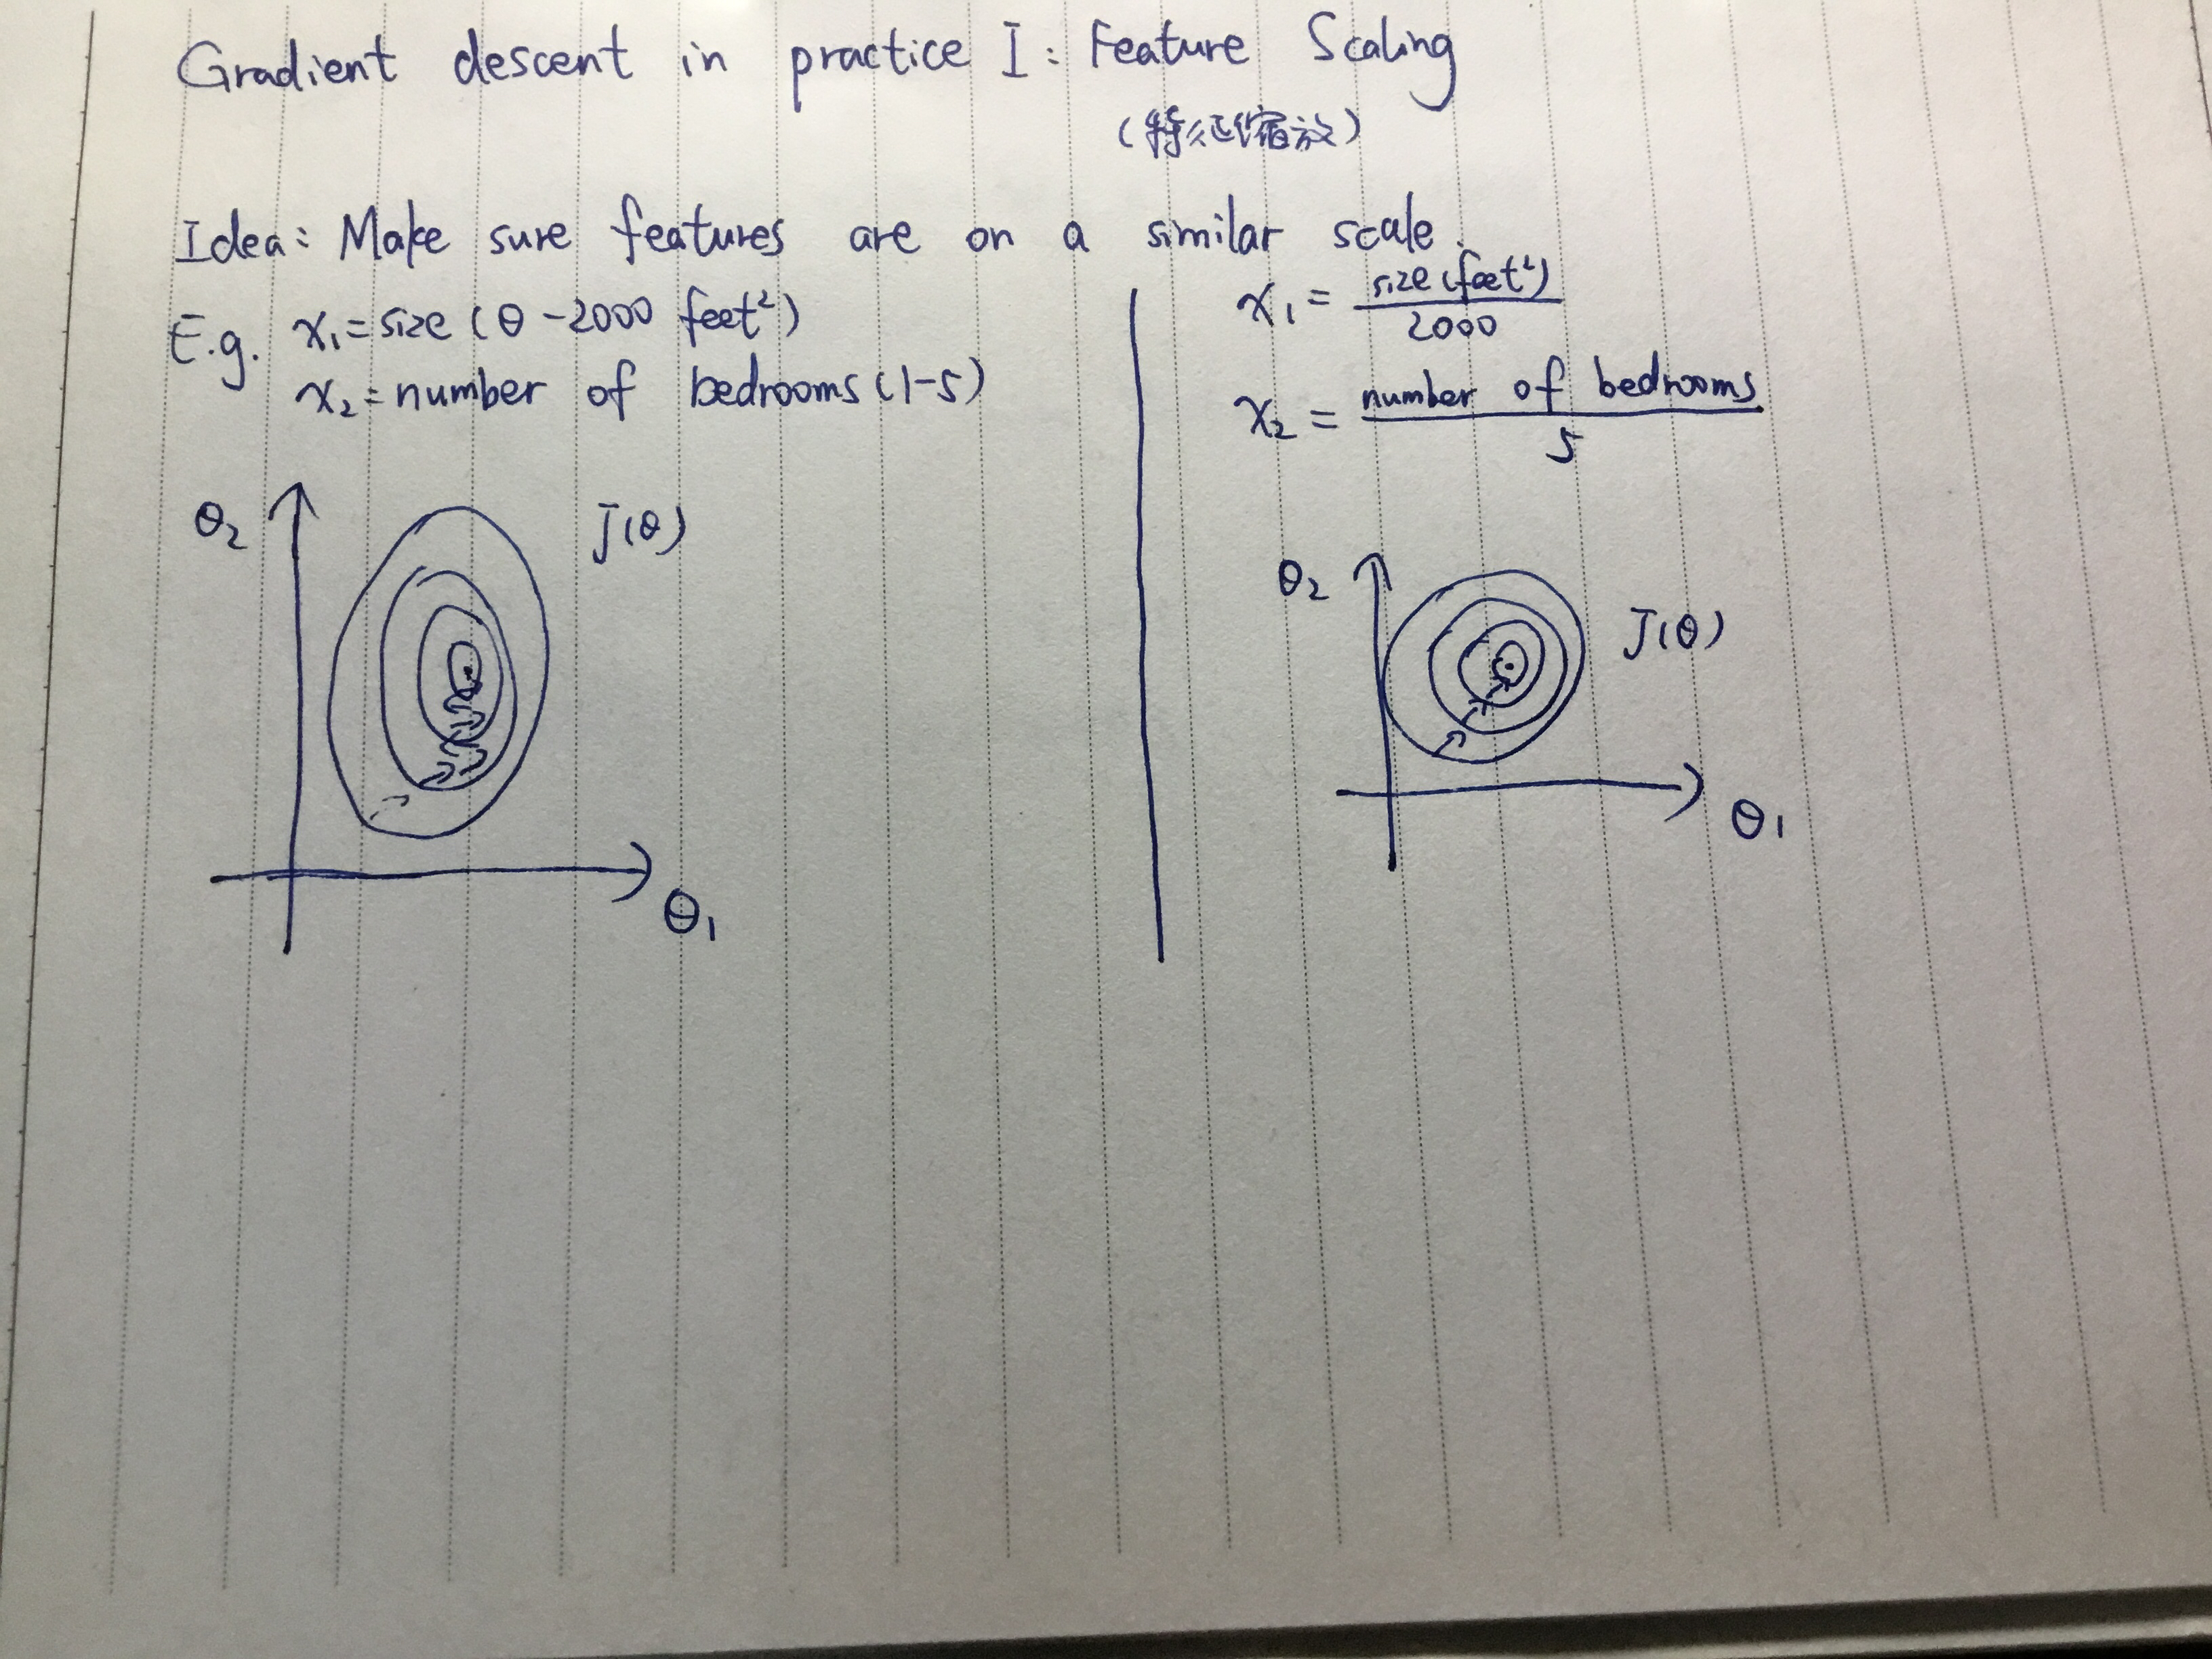 Gradient descent in practice I: Feature Scaling
(特征缩放)
Idea: Make sure features are on a similar scale.
E.g. x₁=size (θ-2000 feet²)
x₂=number of bedrooms (1-5)
θ₂
J(θ)
θ₁
x₁ = size (feet²) / 2000
x₂ = number of bedrooms / 5
θ₂
J(θ)
θ₁